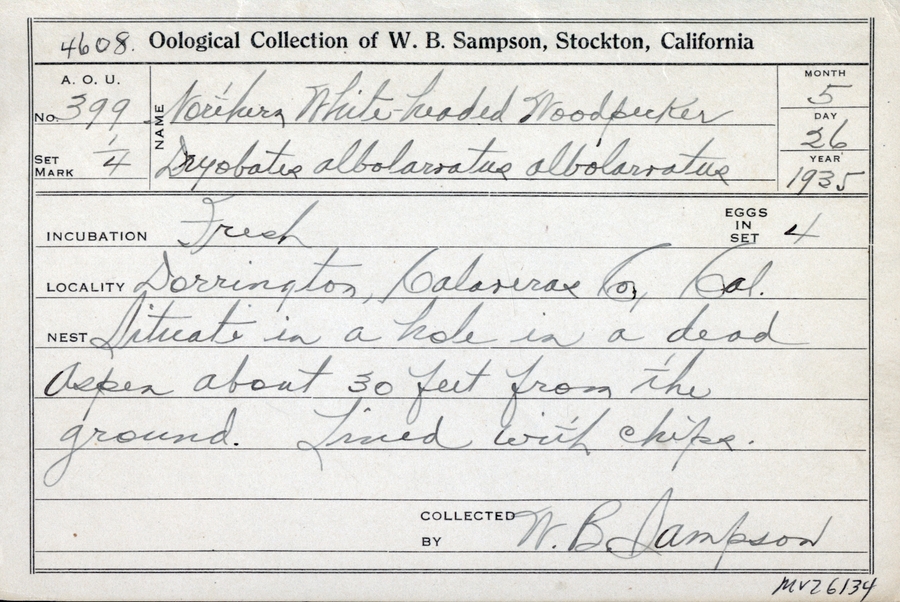 4608. Oological Collection of W. B. Sampson, Stockton, California
A. O. U.
No. 399
SET MARK 1/4
NAME Northern White-headed Woodpecker
Dryobates albolarvatus albolarvatus
MONTH
5
DAY
26
YEAR
1935
INCUBATION Fresh
EGGS IN SET 4
LOCALITY Dorrington, Calaveras Co, Cal.
NEST Situate in a hole in a dead
Aspen about 30 feet from the
ground. Lined with chips.
COLLECTED BY W. B. Sampson
MVZ6134